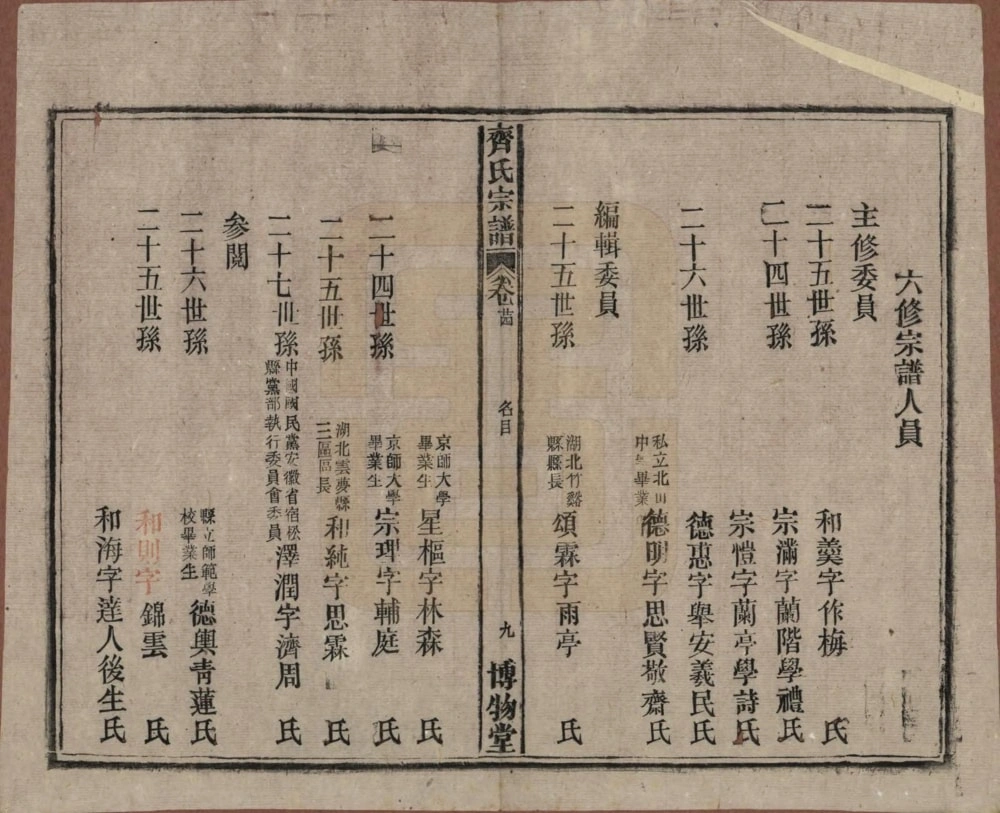 六修宗譜人員
主修委員
二十五世孫 和羹字作梅 氏
二十四世孫 宗滿字蘭階學禮氏
宗愷字蘭亭學詩氏
二十六世孫 德惠字舉安義民氏
私立北
中 畢業 德明字思賢敬齋氏
編輯委員
二十五世孫 湖北竹谿
縣縣長 頌霖字雨亭 氏
齊氏宗譜 卷 名目 九 博物堂
京師大學
畢業生 星樞字林森 氏
二十四世孫 京師大學
畢業生 宗理字輔庭 氏
二十五世孫 湖北雲夢縣
三區區長 和純字思霖 氏
二十七世孫 中國國民黨安徽省宿松
縣黨部執行委員會委員 澤潤字濟周 氏
參閱
二十六世孫 縣立師範學
校畢業生 德輿青蓮氏
和則字 錦雲 氏
二十五世孫 和海字達人後生氏